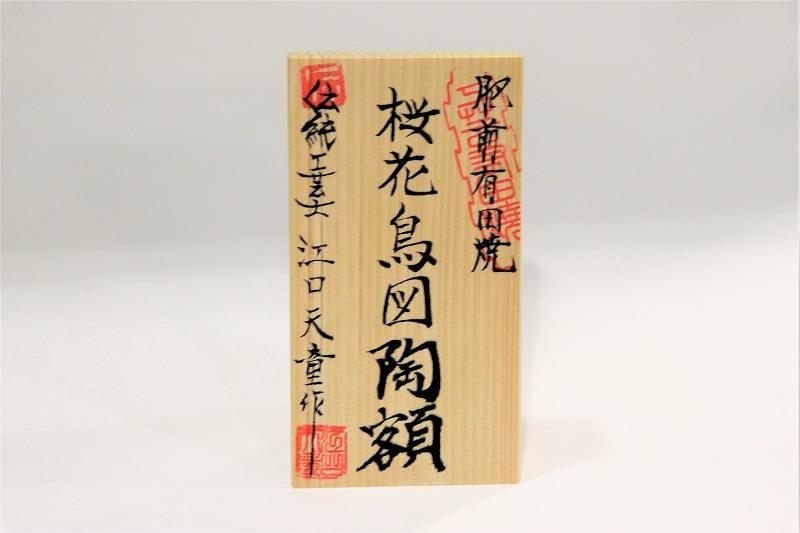 肥前有田焼
桜花鳥図陶額
伝統工芸士 江口天童作
伝